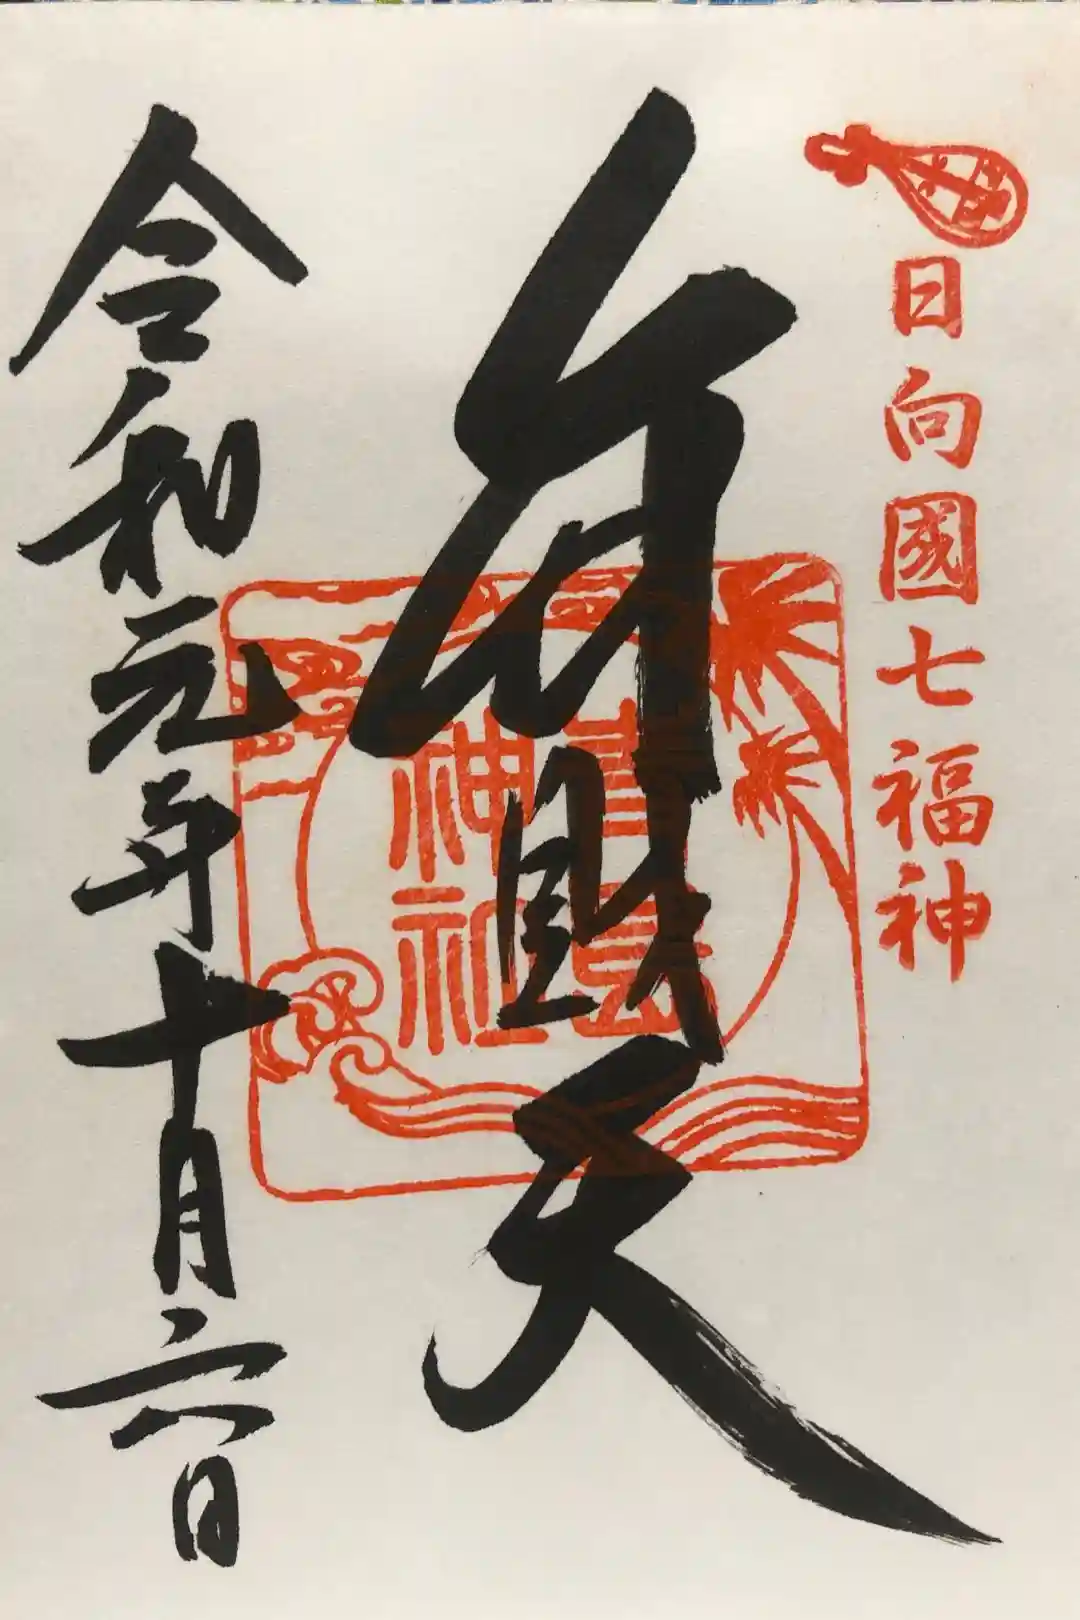 日向國七福神
弁財天
青島
神社
令和元年十月六日